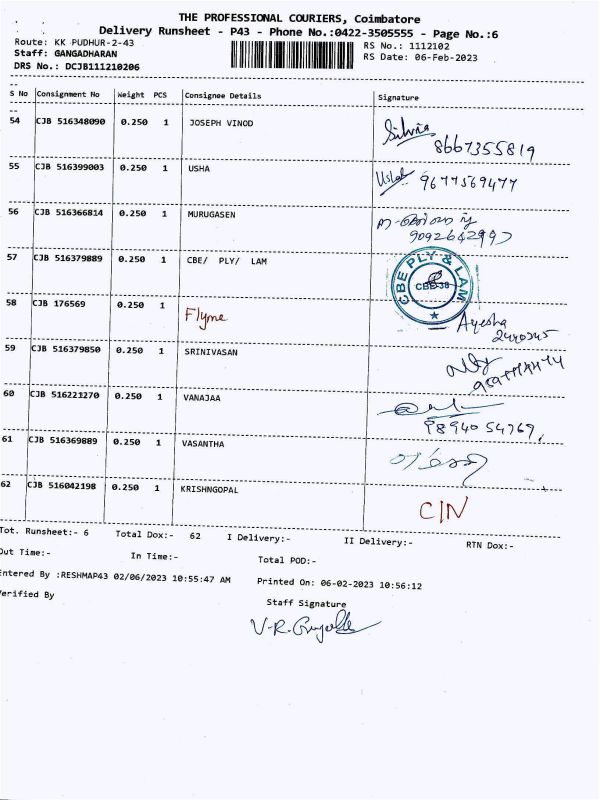 THE PROFESSIONAL COURIERS, Coimbatore
Delivery Runsheet - P43 - Phone No.:0422-3505555 - Page No.:6
Route: KK PUDHUR-2-43 RS No.: 1112102
Staff: GANGADHARAN RS Date: 06-Feb-2023
DRS No.: DCJB111210206
S No Consignment No Weight PCS Consignee Details Signature
54 CJB 516348090 0.250 1 JOSEPH VINOD Silvia
8667355819
55 CJB 516399003 0.250 1 USHA Usha 9677569477
56 CJB 516366814 0.250 1 MURUGASEN
57 CJB 516379889 0.250 1 CBE/ PLY/ LAM CBE PLY & LAM CBE-38
58 CJB 176569 0.250 1 Flyme Ayesha
2440245
59 CJB 516379850 0.250 1 SRINIVASAN
60 CJB 516221270 0.250 1 VANAJAA
98940 54769,
61 CJB 516369889 0.250 1 VASANTHA
62 CJB 516042198 0.250 1 KRISHNGOPAL C/N
Tot. Runsheet:- 6 Total Dox:- 62 I Delivery:- II Delivery:- RTN Dox:-
Out Time:- In Time:- Total POD:-
Entered By :RESHMAP43 02/06/2023 10:55:47 AM Printed On: 06-02-2023 10:56:12
Verified By Staff Signature
V-R.